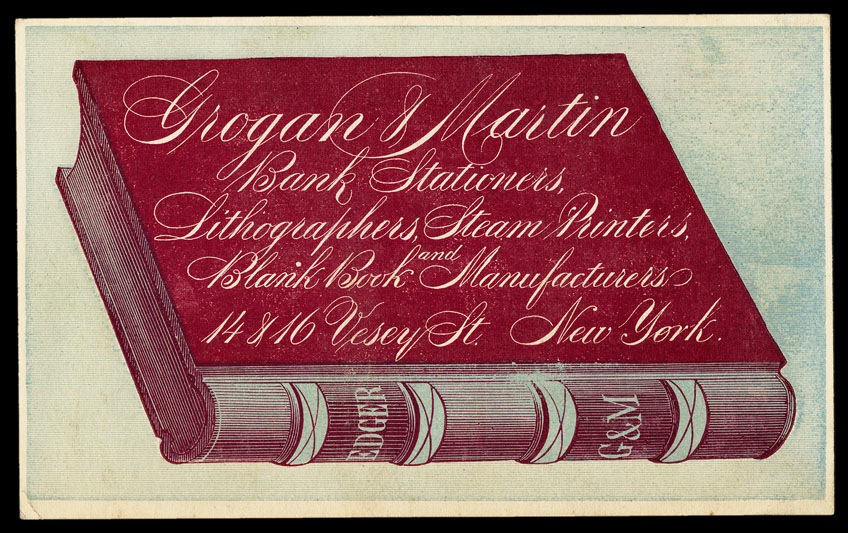 Grogan & Martin
Bank Stationers,
Lithographers, Steam Printers,
Blank Book and Manufacturers
14 & 16 Vesey St. New York.
LEDGER
G&M